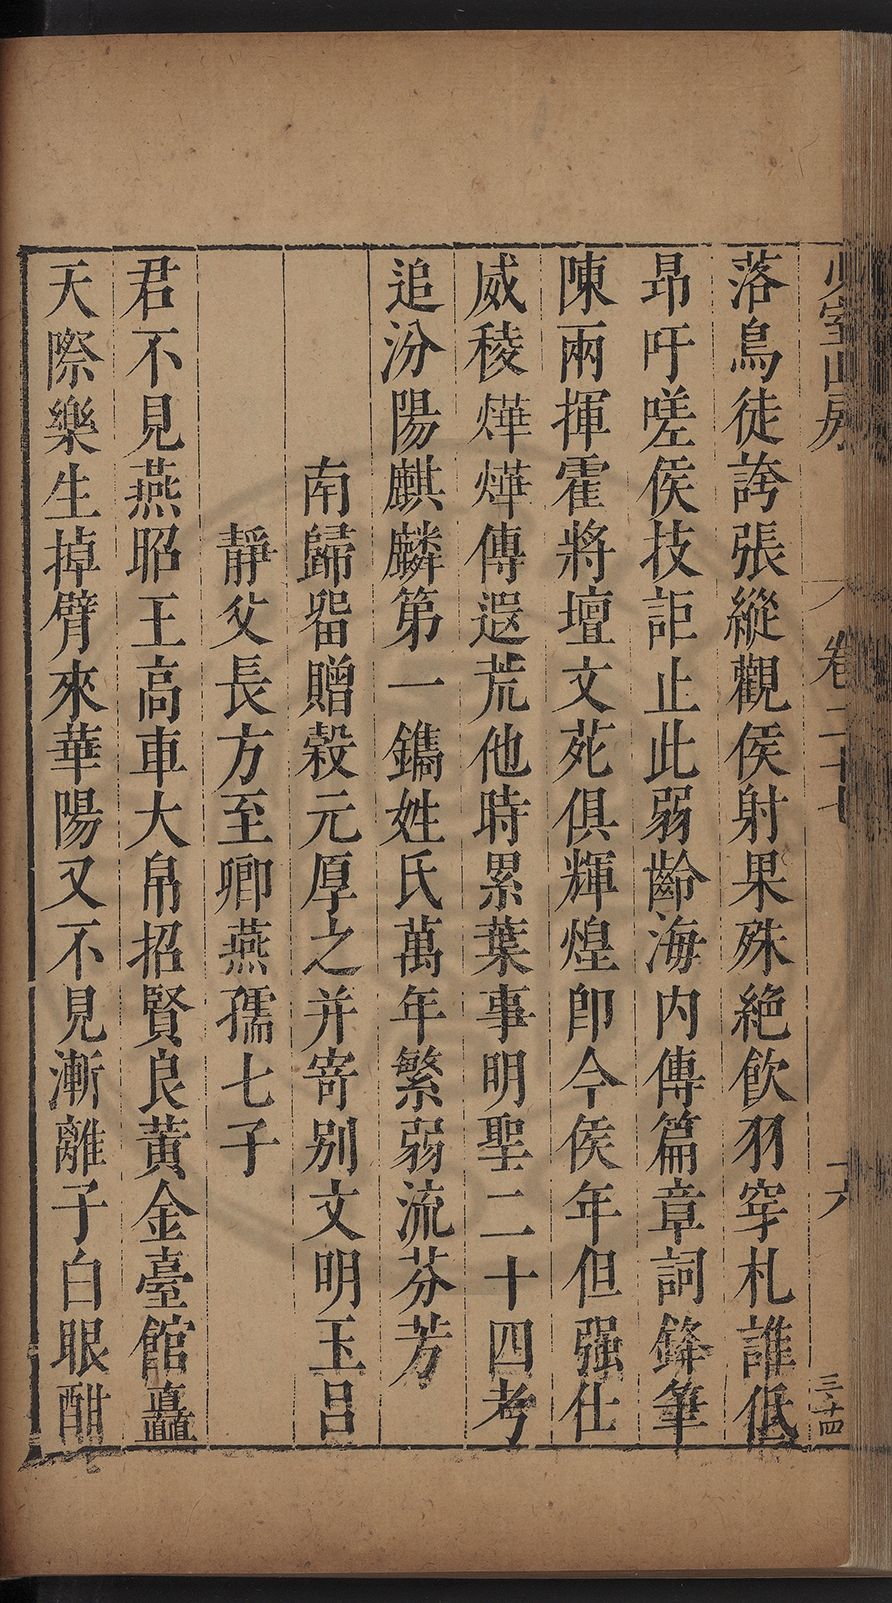 少室山房　卷二十七　六　三十四
落鳥徒誇張縱觀侯射果殊絶飲羽穿札誰低
昻吁嗟侯技詎止此弱齡海内傳篇章詞鋒筆
陳兩揮霍將壇文苑俱輝煌卽今侯年但强仕
威稜燁燁傳遐荒他時累葉事明聖二十四考
追汾陽麒麟第一鐫姓氏萬年繁弱流芬芳
南歸畱贈穀元厚之并寄别文明玉吕
靜父長方至卿燕孺七子
君不見燕昭王高車大帛招賢良黄金臺館矗
天際樂生掉臂來華陽又不見漸離子白眼酣